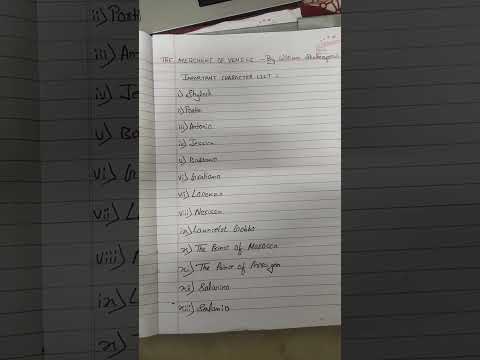 THE MERCHANT OF VENICE - By William Shakespeare
IMPORTANT CHARACTER LIST :
i) Shylock
ii) Portia
iii) Antonio
iv) Jessica
v) Bassanio
vi) Gratiano
vii) Lorenzo
viii) Nerissa
ix) Launcelot Gobbo
x) The Prince of Morocco
xi) The Prince of Arragon
xii) Salarino
xiii) Salanio